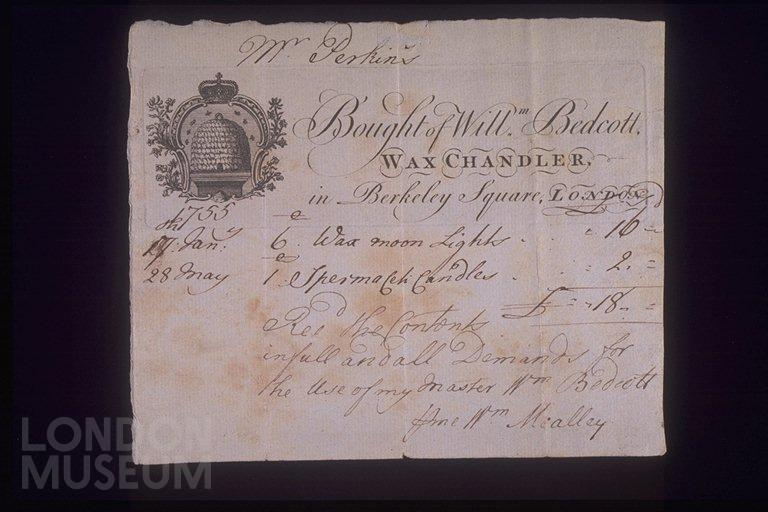 Mr Perkins
Bought of Willm. Bedcott,
WAX CHANDLER,
in Berkeley Square, LONDON
1755
17 Jany 6 Wax moon Lights 16
28 May 1 Sperma Ceti Candles 2
£ 18
Recd the Contents
in full and all Demands for
the Use of my Master Wm Bedcott
Wm Mcalley
LONDON
MUSEUM